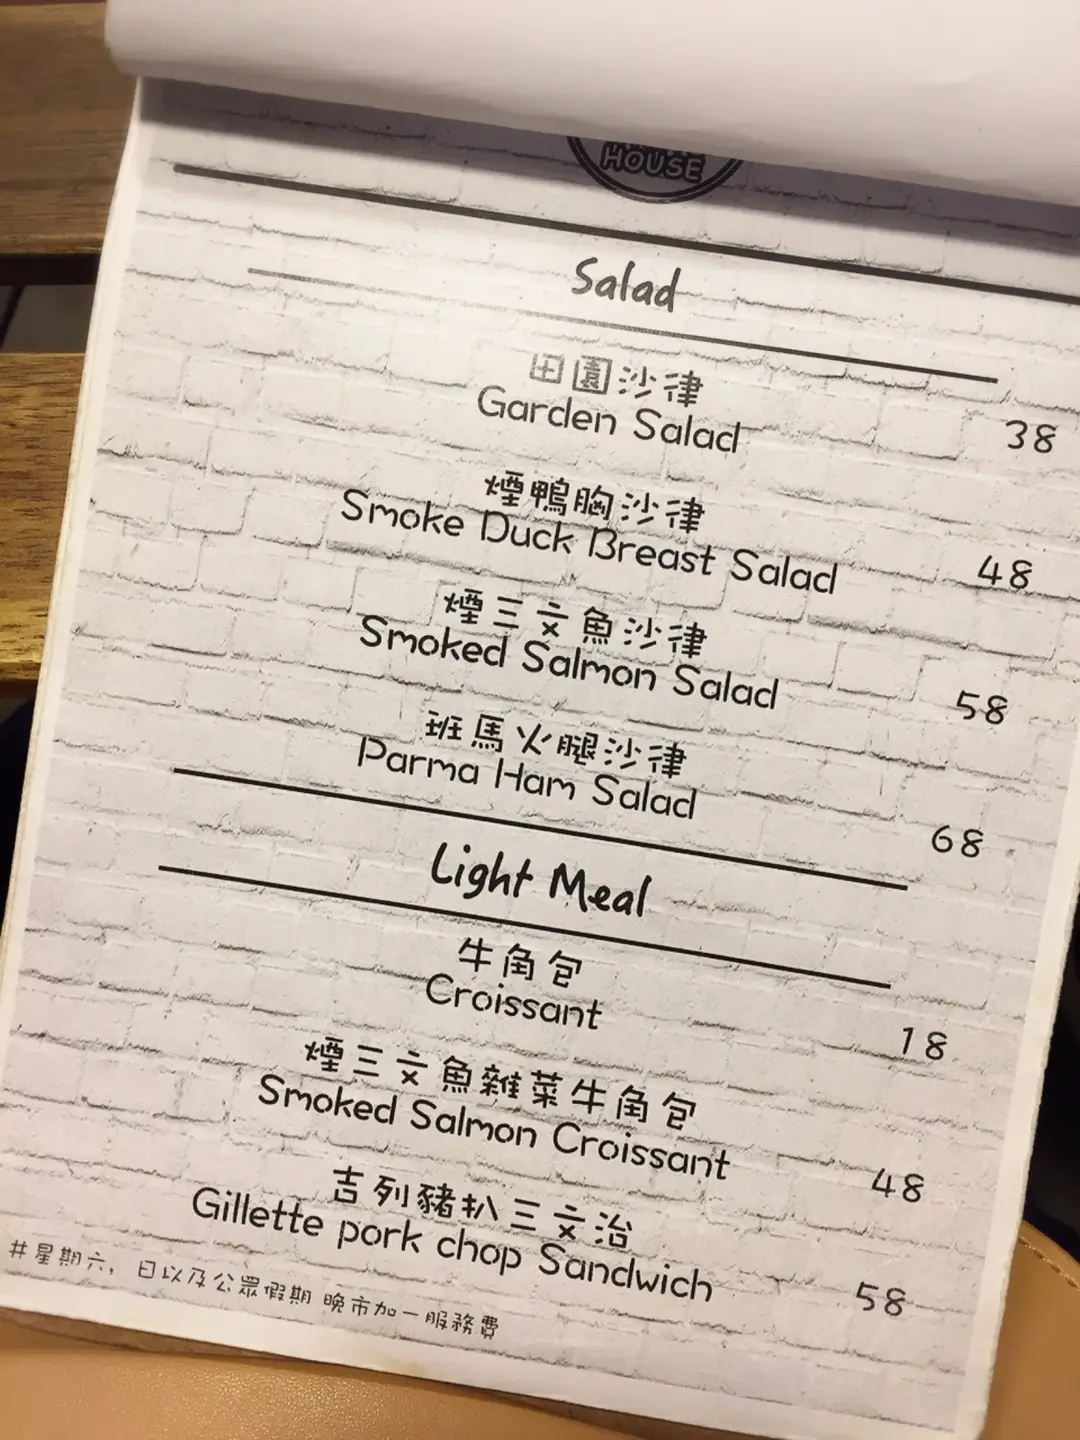 HOUSE
Salad
田園沙律
Garden Salad
38
煙鴨胸沙律
Smoke Duck Breast Salad
48
煙三文魚沙律
Smoked Salmon Salad
58
班馬火腿沙律
Parma Ham Salad
68
Light Meal
牛角包
Croissant
18
煙三文魚雜菜牛角包
Smoked Salmon Croissant
48
吉列豬扒三文治
Gillette pork chop Sandwich
58
#星期六，日以及公眾假期 晚市加一服務費